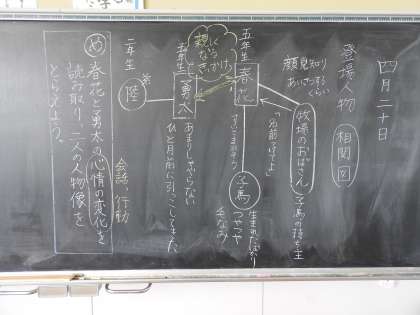 四月二十日
登場人物 相関図
顔見知り
あいさつする
くらい
牧場のおばさん
子馬の持ち主
「名前つけてよ」
五年生
春花
子馬
生まれたばかり
つやつや
毛なみ
親しく
なる
きっかけ
五年生
勇太
あまりしゃべらない
ひと月前に引っこしてきた
二年生
陸
弟
会話、行動
め
春花と勇太の心情の変化を
読み取り、二人の人物像を
とらえよう。